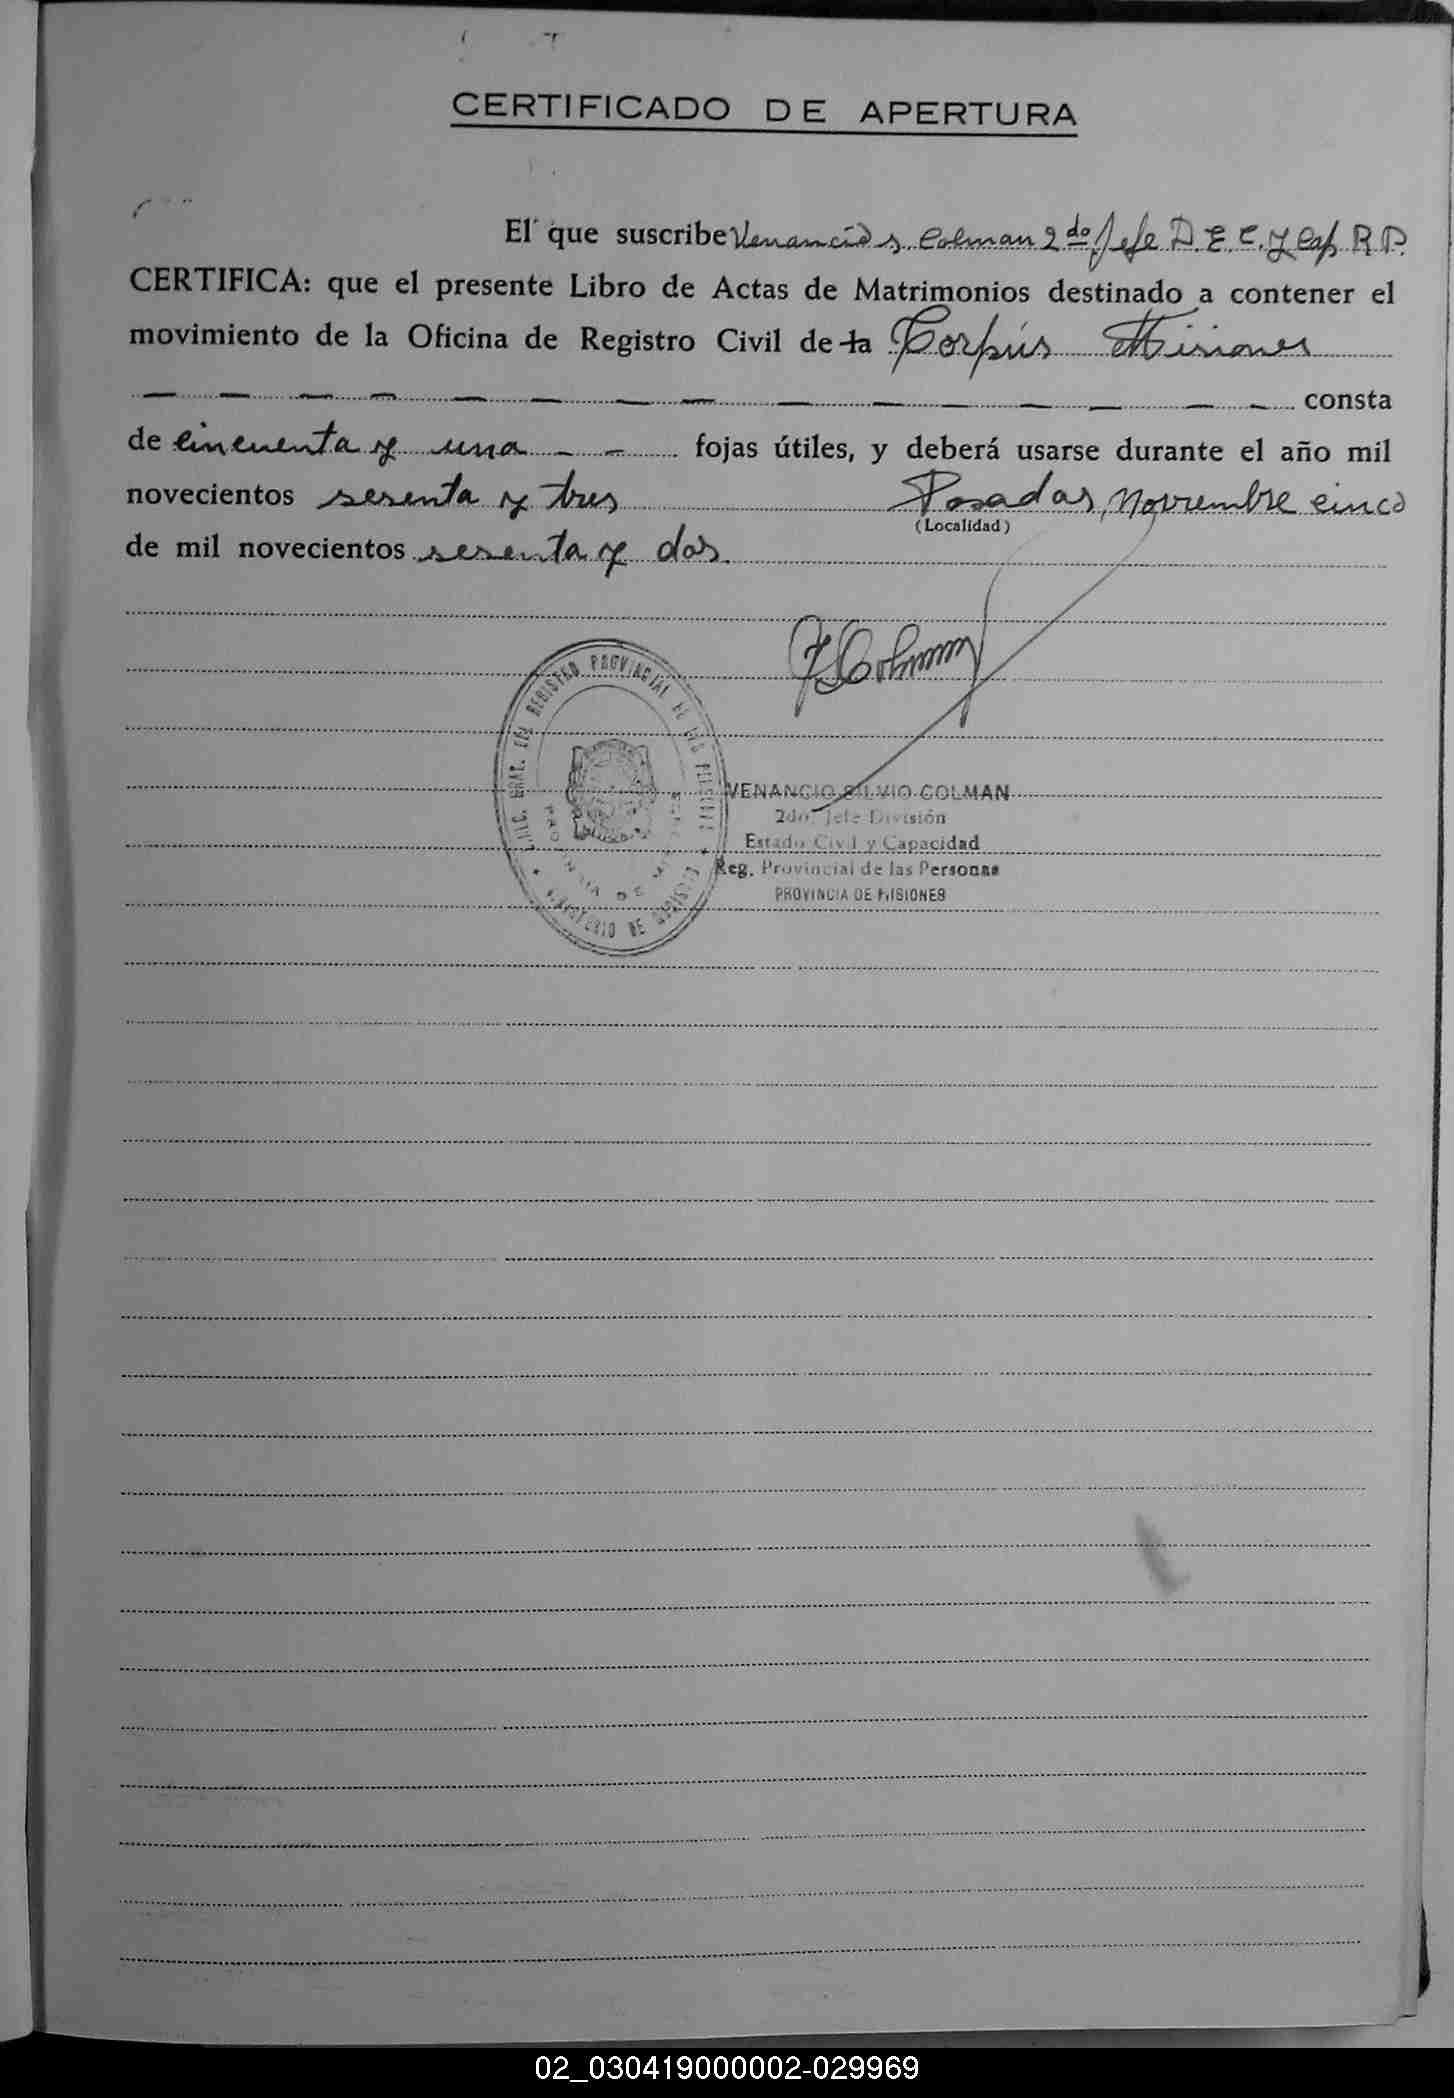 CERTIFICADO DE APERTURA
El que suscribe Venancio S. Colman 2do Jefe D. E. C. y Cap. R. P.
CERTIFICA: que el presente Libro de Actas de Matrimonios destinado a contener el
movimiento de la Oficina de Registro Civil de la Corpús Misiones
consta
de cincuenta y una fojas útiles, y deberá usarse durante el año mil
novecientos sesenta y tres Posadas, noviembre cinco
(Localidad)
de mil novecientos sesenta y dos.
VSColman
DEL REGISTRO PROVINCIAL DE LAS PERSONAS
PROVINCIA DE MISIONES
VENANCIO SILVIO COLMAN
2do. Jefe División
Estado Civil y Capacidad
Reg. Provincial de las Personas
PROVINCIA DE MISIONES
02_030419000002-029969